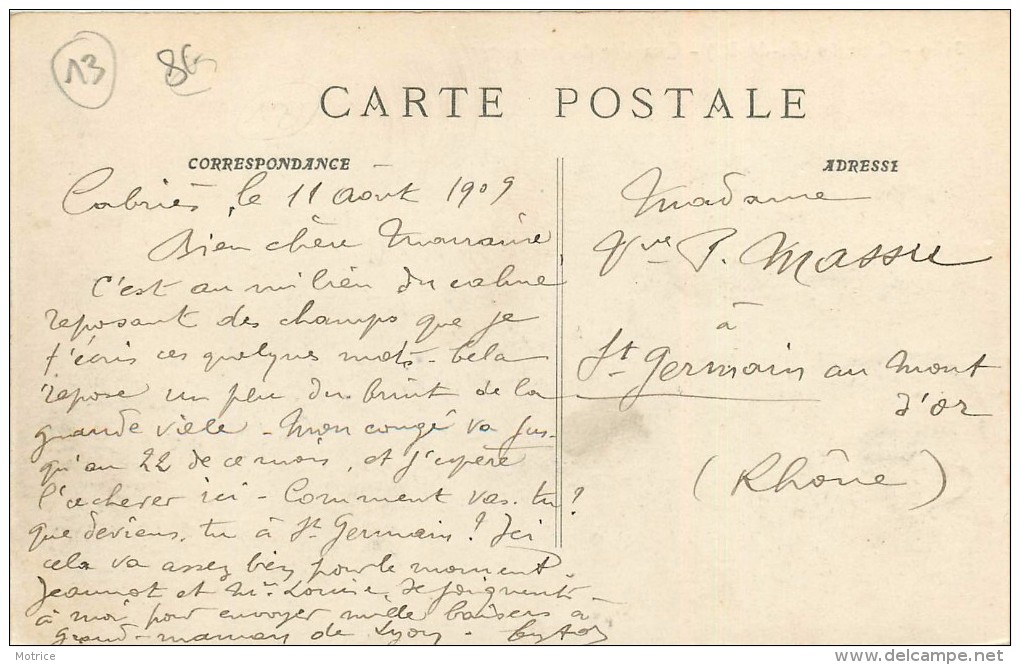 13
86
CARTE POSTALE
CORRESPONDANCE
Cabriès, le 11 Août 1909
Bien chère Marraine
C'est au milieu du calme
reposant des champs que je
t'écris ces quelques mots - Cela
repose un peu du bruit de la
grande ville - Mon congé va jus-
qu'au 22 de ce mois, et j'espère
l'achever ici - Comment vas-tu?
que deviens-tu à St Germain? Ici
cela va assez bien pour le moment
Jeannot et Me Louise, se joignent
à moi pour envoyer mille baisers à
grand-maman de Lyon -
ADRESSE
Madame
Vve P. Massu
à
St Germain au Mont
d'or
(Rhône)
Website: Motrice
delcampe.net